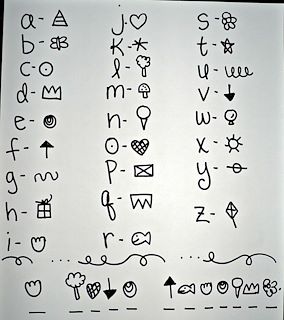 a-
b-
c-
d-
e-
f-
g-
h-
i-
j-
K-
l-
m-
n-
o-
P-
q-
r-
s-
t-
u-
v-
w-
x-
y-
z-